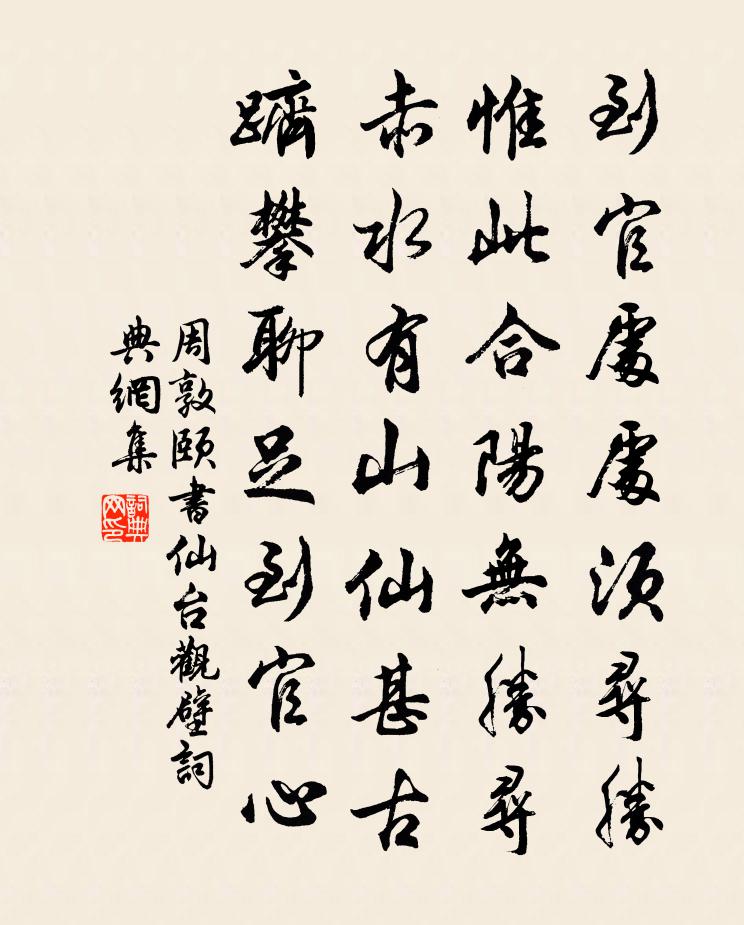 到官處處須尋勝
惟此合陽無勝尋
赤水有山仙甚古
躋攀聊足到官心
周敦頤書仙台觀壁詞
典網集
詞典網印